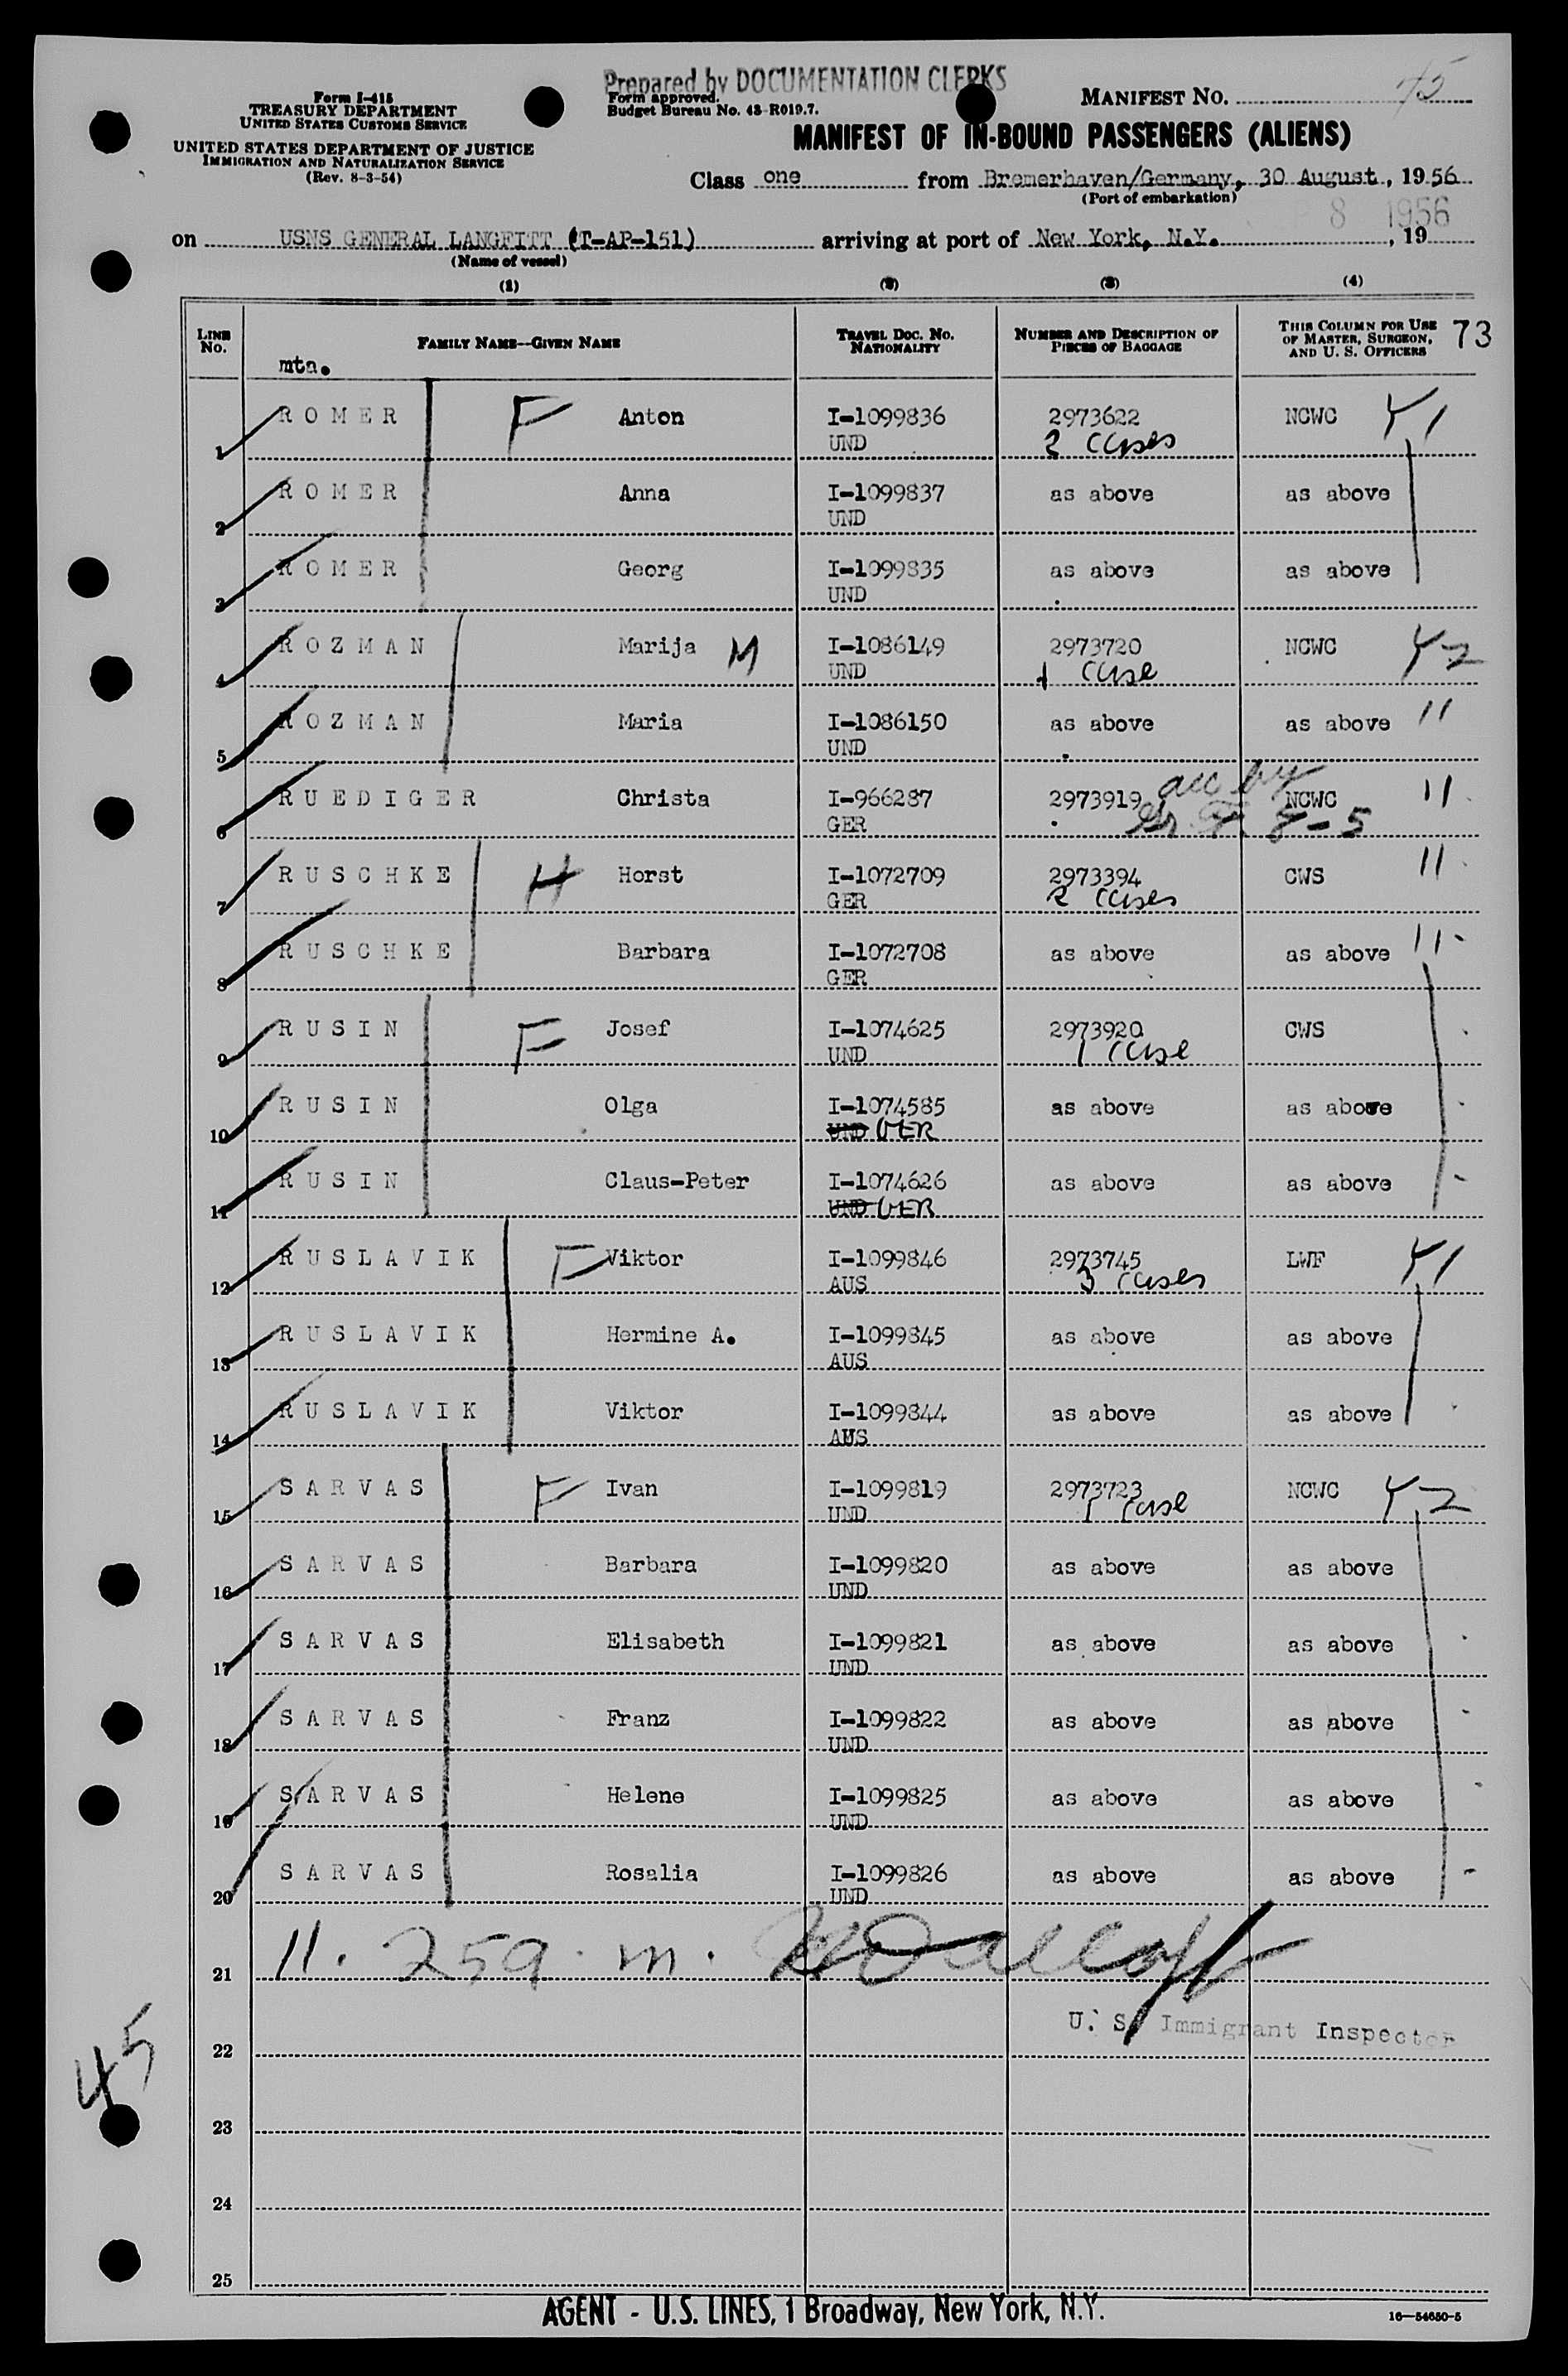 Prepared by DOCUMENTATION CLERKS
Form I-415
TREASURY DEPARTMENT
UNITED STATES CUSTOMS SERVICE
UNITED STATES DEPARTMENT OF JUSTICE
IMMIGRATION AND NATURALIZATION SERVICE
(Rev. 8-3-54)
Form approved.
Budget Bureau No. 43-R019.7.
MANIFEST NO. 45
MANIFEST OF IN-BOUND PASSENGERS (ALIENS)
Class one from Bremerhaven/Germany, 30 August, 1956
(Port of embarkation)
8 1956
on USNS GENERAL LANGFITT (T-AP-151) arriving at port of New York, N.Y., 19
(Name of vessel)
(1) (2) (3) (4)
LINE No. FAMILY NAME—GIVEN NAME TRAVEL DOC. NO. NATIONALITY NUMBER AND DESCRIPTION OF PIECES OF BAGGAGE THIS COLUMN FOR USE OF MASTER, SURGEON, AND U. S. OFFICERS 73
mta.
1 ROMER F Anton I-1099836 2973622 NCWC Y1
UND 2 cases
2 ROMER Anna I-1099837 as above as above
UND
3 ROMER Georg I-1099835 as above as above
UND
4 ROZMAN Marija M I-1086149 2973720 NCWC Y2
UND 1 case
5 ROZMAN Maria I-1086150 as above as above 11
UND
6 RUEDIGER Christa I-966287 2973919 acc by NCWC 11
GER 8-5
7 RUSCHKE H Horst I-1072709 2973394 CWS 11
GER 2 cases
8 RUSCHKE Barbara I-1072708 as above as above 11
GER
9 RUSIN F Josef I-1074625 2973920 CWS
UND 1 case
10 RUSIN Olga I-1074585 as above as above
UND GER
11 RUSIN Claus-Peter I-1074626 as above as above
UND GER
12 RUSLAVIK F Viktor I-1099846 2973745 LWF Y1
AUS 3 cases
13 RUSLAVIK Hermine A. I-1099845 as above as above
AUS
14 RUSLAVIK Viktor I-1099844 as above as above
AUS
15 SARVAS F Ivan I-1099819 2973723 NCWC Y2
UND 1 case
16 SARVAS Barbara I-1099820 as above as above
UND
17 SARVAS Elisabeth I-1099821 as above as above
UND
18 SARVAS Franz I-1099822 as above as above
UND
19 SARVAS Helene I-1099825 as above as above
UND
20 SARVAS Rosalia I-1099826 as above as above
UND
21 11. 259. m.
U. S. Immigrant Inspector
22
45
23
24
25
AGENT - U.S. LINES, 1 Broadway, New York, N.Y.
16—54650-5